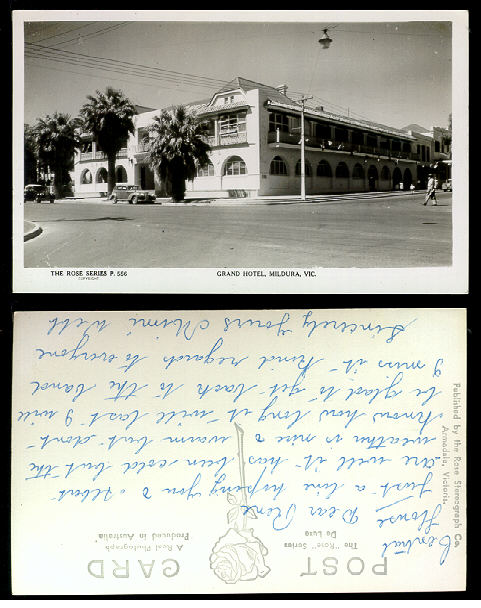 THE ROSE SERIES P. 556
COPYRIGHT
GRAND HOTEL, MILDURA, VIC.
POST CARD
The "Rose" Series
De Luxe
A Real Photograph
Produced in Australia
Published by the Rose Stereograph Co.
Armadale, Victoria.
Central
House Dear Rene
Just a line hoping you & Albert
are well it has been cold but the
weather is nice & warm but dont
know how long it will last I will
be glad to get back to the band
I miss it Kind regards to everyone
Sincerely Yours Mimi Webb